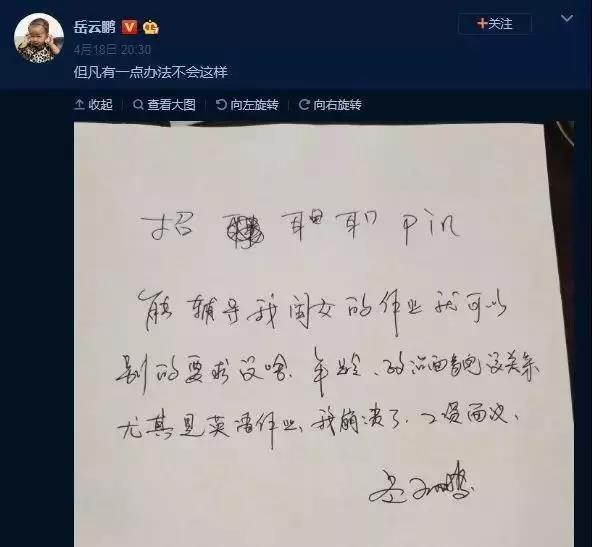 岳云鹏
+关注
4月18日 20:30
但凡有一点办法不会这样
收起 查看大图 向左旋转 向右旋转
招 Pin
能辅导我闺女的作业就可以
别的要求没啥、年龄、政治面貌没关系
尤其是英语作业、我崩溃了、工资面议、
岳云鹏